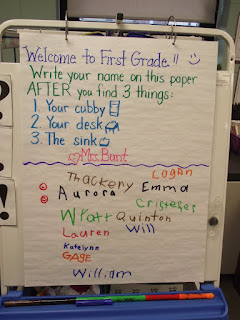 Welcome to First Grade!!
Write your name on this paper
AFTER you find 3 things:
1. Your cubby
2. Your desk
3. The sink
Mrs. Bunt
Thackery Logan
Aurora Emma
Cristofer
Wyatt Quinton
Lauren Will
Katelynn
GAGE
William